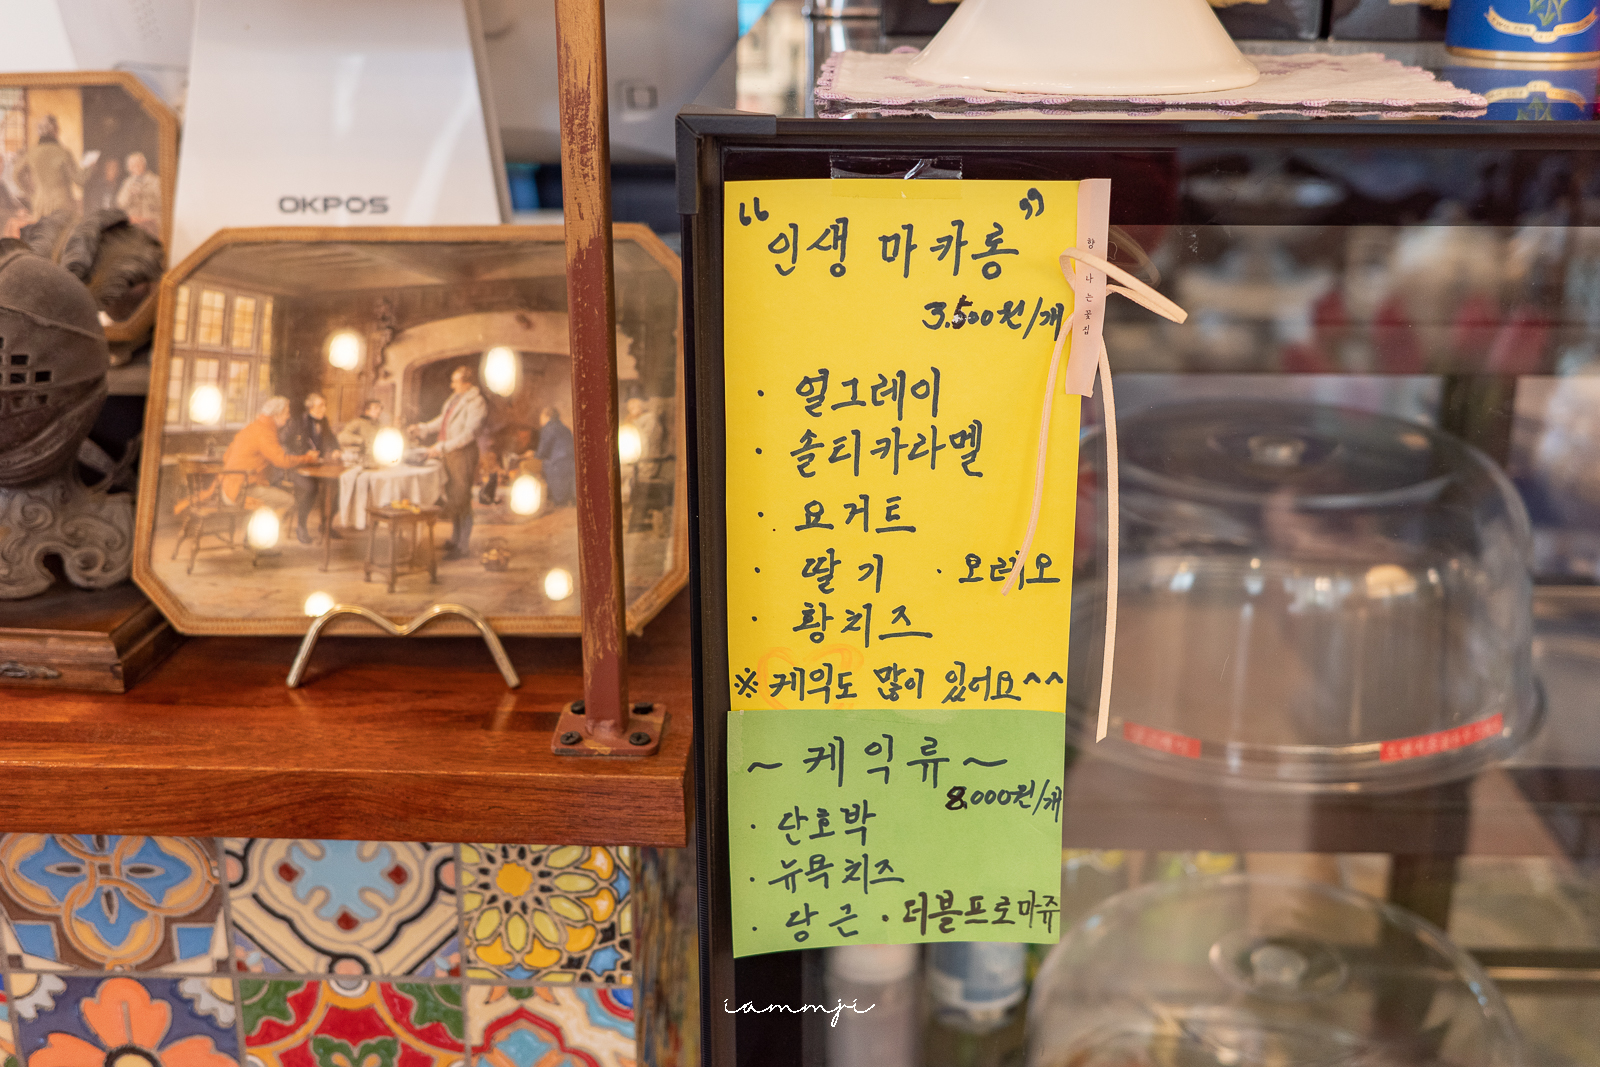 OKPOS
"인생 마카롱"
3,500원/개
· 얼그레이
· 솔티카라멜
· 요거트
· 딸기 · 오레오
· 황치즈
※ 케익도 많이 있어요^^
~케익류~
8,000원/개
· 단호박
· 뉴욕치즈
· 당근 · 더블프로마쥬
향나는꽃집
iammji